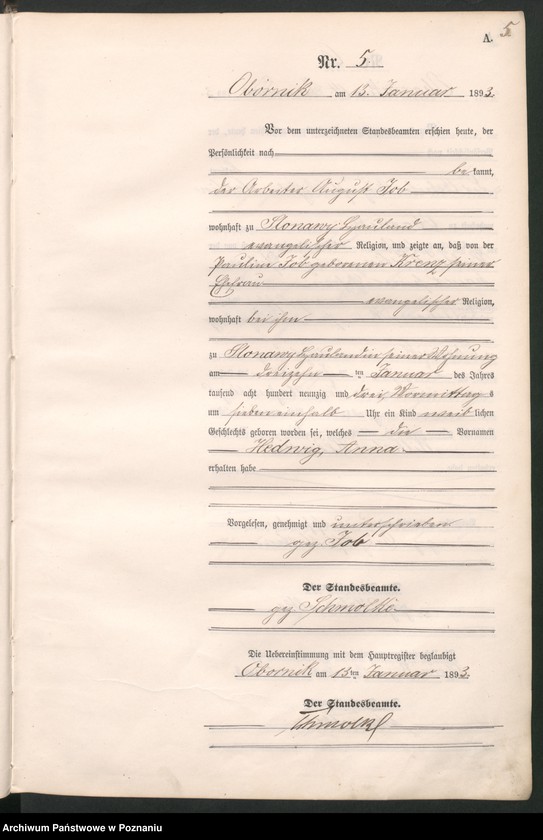 A. 5
Nr. 5
Obornik am 13. Januar 1893.
Vor dem unterzeichneten Standesbeamten erschien heute, der
Persönlichkeit nach
bekannt,
der Arbeiter August Job
wohnhaft zu Slonawy Hauland
evangelischer Religion, und zeigte an, daß von der
Pauline Job geborenen Krenz seiner
Ehefrau
evangelischer Religion,
wohnhaft bei ihm
zu Slonawy Hauland in seiner Wohnung
am dreizehn ten Januar des Jahres
tausend acht hundert neunzig und drei, Vormittag s
um sieben einhalb Uhr ein Kind weib lichen
Geschlechts geboren worden sei, welches die Vornamen
Hedwig, Anna
erhalten habe
Vorgelesen, genehmigt und unterschrieben
gez Job
Der Standesbeamte.
gez Schmolke
Die Uebereinstimmung mit dem Hauptregister beglaubigt
Obornik am 15ten Januar 1893.
Der Standesbeamte.
Schmolke
Archiwum Państwowe w Poznaniu